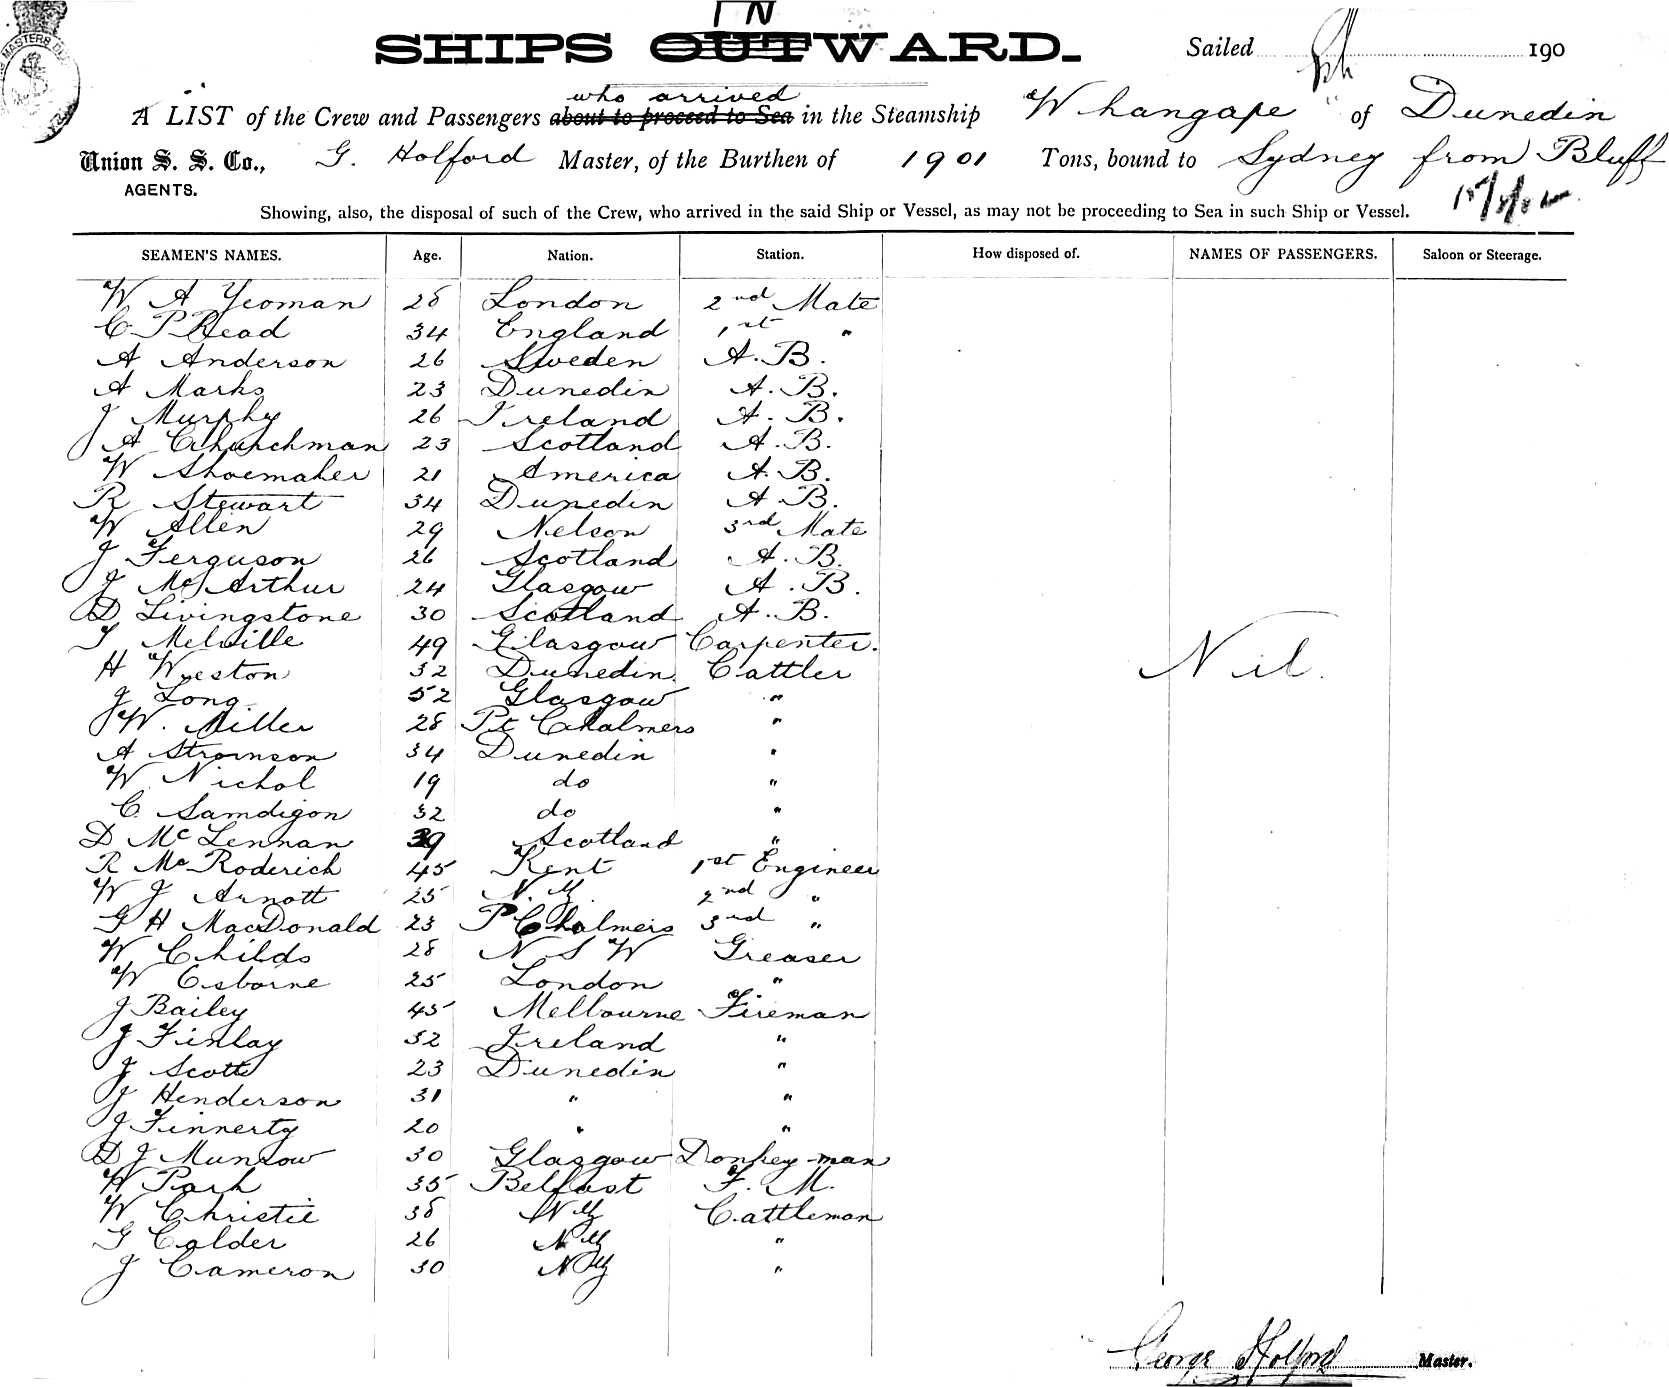 IN
SHIPS OUTWARD. Sailed 190
who arrived
A LIST of the Crew and Passengers about to proceed to Sea in the Steamship "Whangape" of Dunedin
Union S. S. Co., G. Holford Master, of the Burthen of 1901 Tons, bound to Sydney from Bluff
AGENTS.
Showing, also, the disposal of such of the Crew, who arrived in the said Ship or Vessel, as may not be proceeding to Sea in such Ship or Vessel.
SEAMEN'S NAMES. Age. Nation. Station. How disposed of. NAMES OF PASSENGERS. Saloon or Steerage.
W A Yeoman 28 London 2nd Mate
C P Read 34 England 1st "
A Anderson 26 Sweden A. B.
A Marks 23 Dunedin A. B.
J Murphy 26 Ireland A. B.
A Churchman 23 Scotland A. B.
W Shoemaker 21 America A. B.
R Stewart 34 Dunedin A B.
W Allen 29 Nelson 3rd Mate
J Ferguson 26 Scotland A. B.
J McArthur 24 Glasgow A. B.
D Livingstone 30 Scotland A. B.
T Melville 49 Glasgow Carpenter.
H Weston 32 Dunedin Cattler
J Long. 52 Glasgow "
W. Miller 28 Pt Chalmers "
A 34 Dunedin "
W Nichol 19 do "
C. Samdigon 32 do "
D McLennan 39 Scotland "
R McRoderich 45 Kent 1st Engineer
W J Arnott 25 N. Z. 2nd "
G H MacDonald 23 P Chalmers 3rd "
W Childs 28 N S W Greaser
W Osborne 25 London "
J Bailey 45 Melbourne Fireman
J Finlay 32 Ireland "
J Scott 23 Dunedin "
J Henderson 31 " "
J Finnerty 20 " "
D J Munrow 30 Glasgow Donkey-man
H Park 35 Belfast F. M.
W Christie 38 NZ Cattleman
G Calder 26 NZ "
J Cameron 30 NZ "
Nil.
George Holford Master.